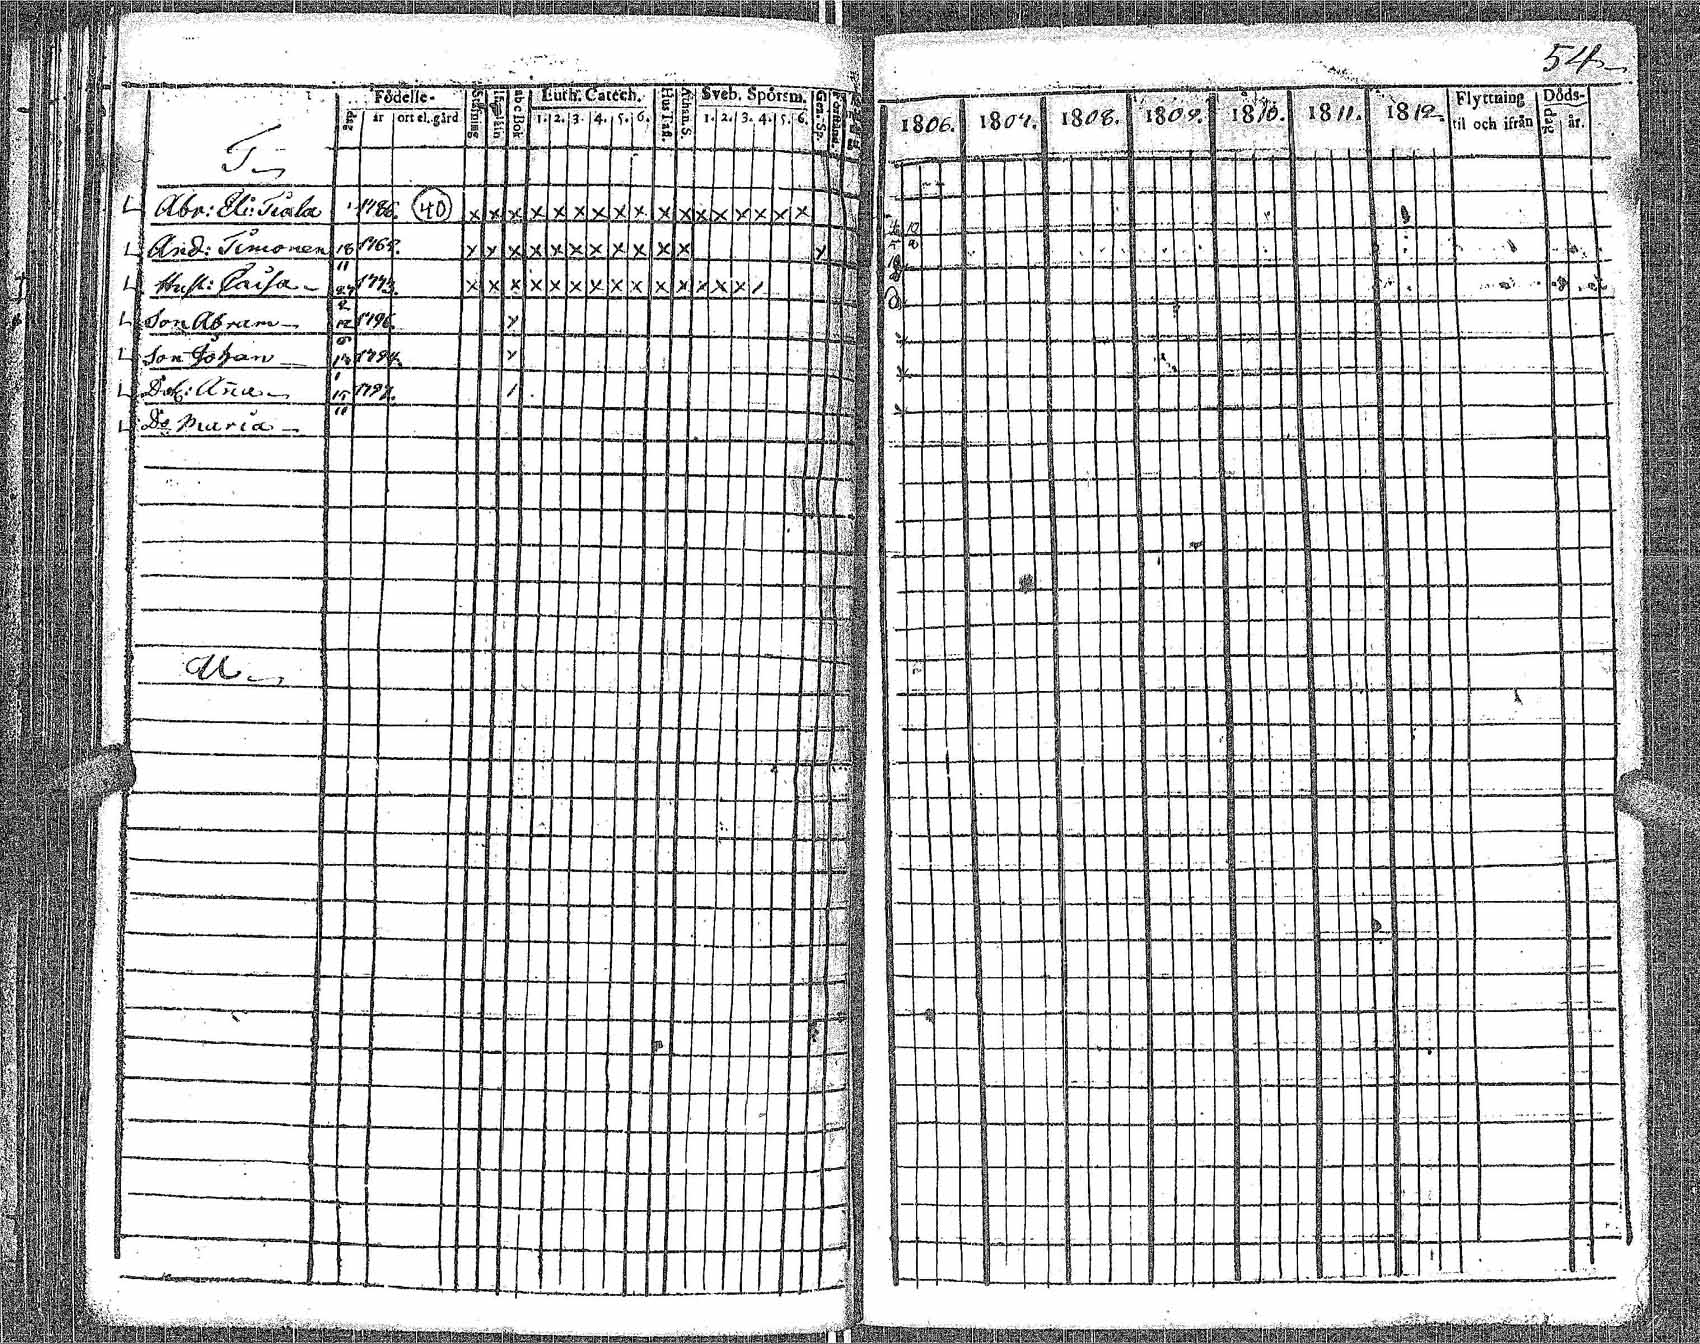 54
Födelse- Luth. Catech. Sveb. Spörsm.
dag år ort el. gård Stafning abcBok 1. 2. 3. 4. 5. 6. Hus Tafl. Athan. S. 1. 2. 3. 4. 5. 6. Gen. Sp.
1806. 1807. 1808. 1809. 1810. 1811. 1812. Flyttning til och ifrån Döds- dag år.
T
Abr: Eli: 1786. 40 x x x x x x x x x x x x x x x x x
And: Timonen 18 11 1763. x x x x x x x x x x x x
Hust: Caisa 27 2 1773. x x x x x x x x x x x x x x /
Son Abram 12 1796. x
Son Johan 1794. x
Dot: Aña 15 11 1797. /
Do Maria
U